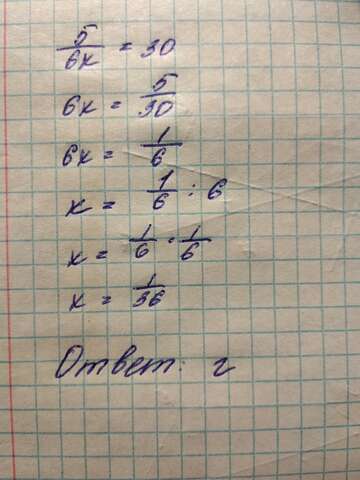 5/6x = 30
6x = 5/30
6x = 1/6
x = 1/6 : 6
x = 1/6 · 1/6
x = 1/36
Ответ: г